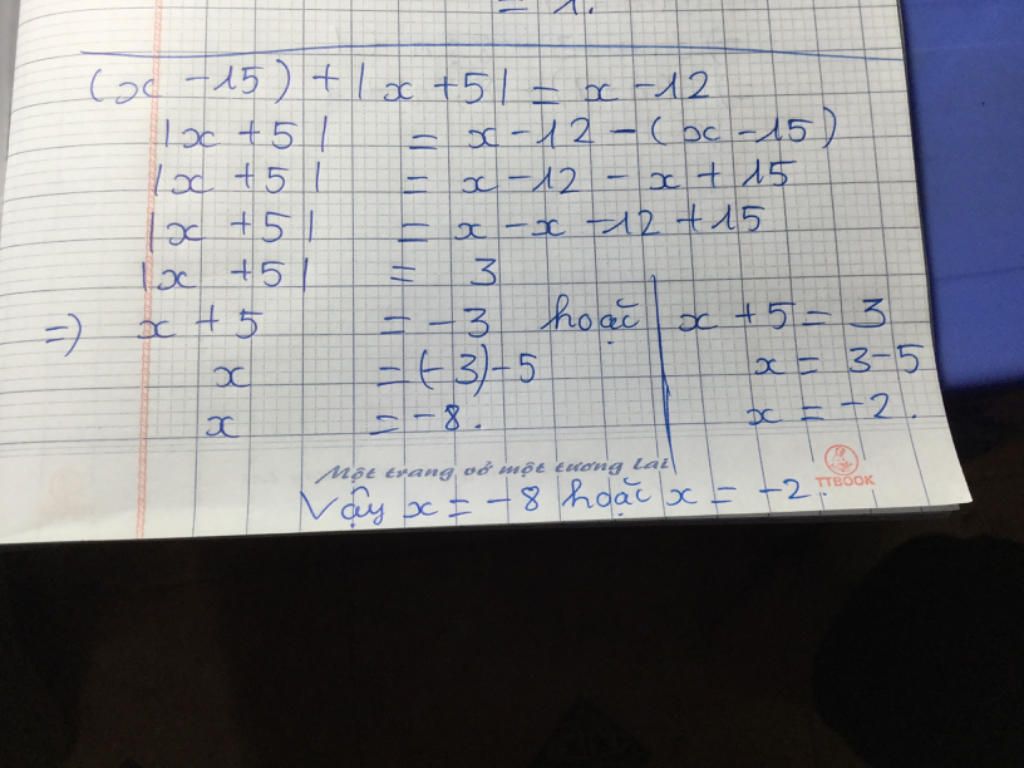 = 1.
(x - 15) + |x + 5| = x - 12
|x + 5| = x - 12 - (x - 15)
|x + 5| = x - 12 - x + 15
|x + 5| = x - x - 12 + 15
|x + 5| = 3
=> x + 5 = -3 hoặc | x + 5 = 3
x = (-3) - 5 | x = 3 - 5
x = -8. | x = -2.
Một trang vở một tương lai
TTBOOK
Vậy x = -8 hoặc x = -2.